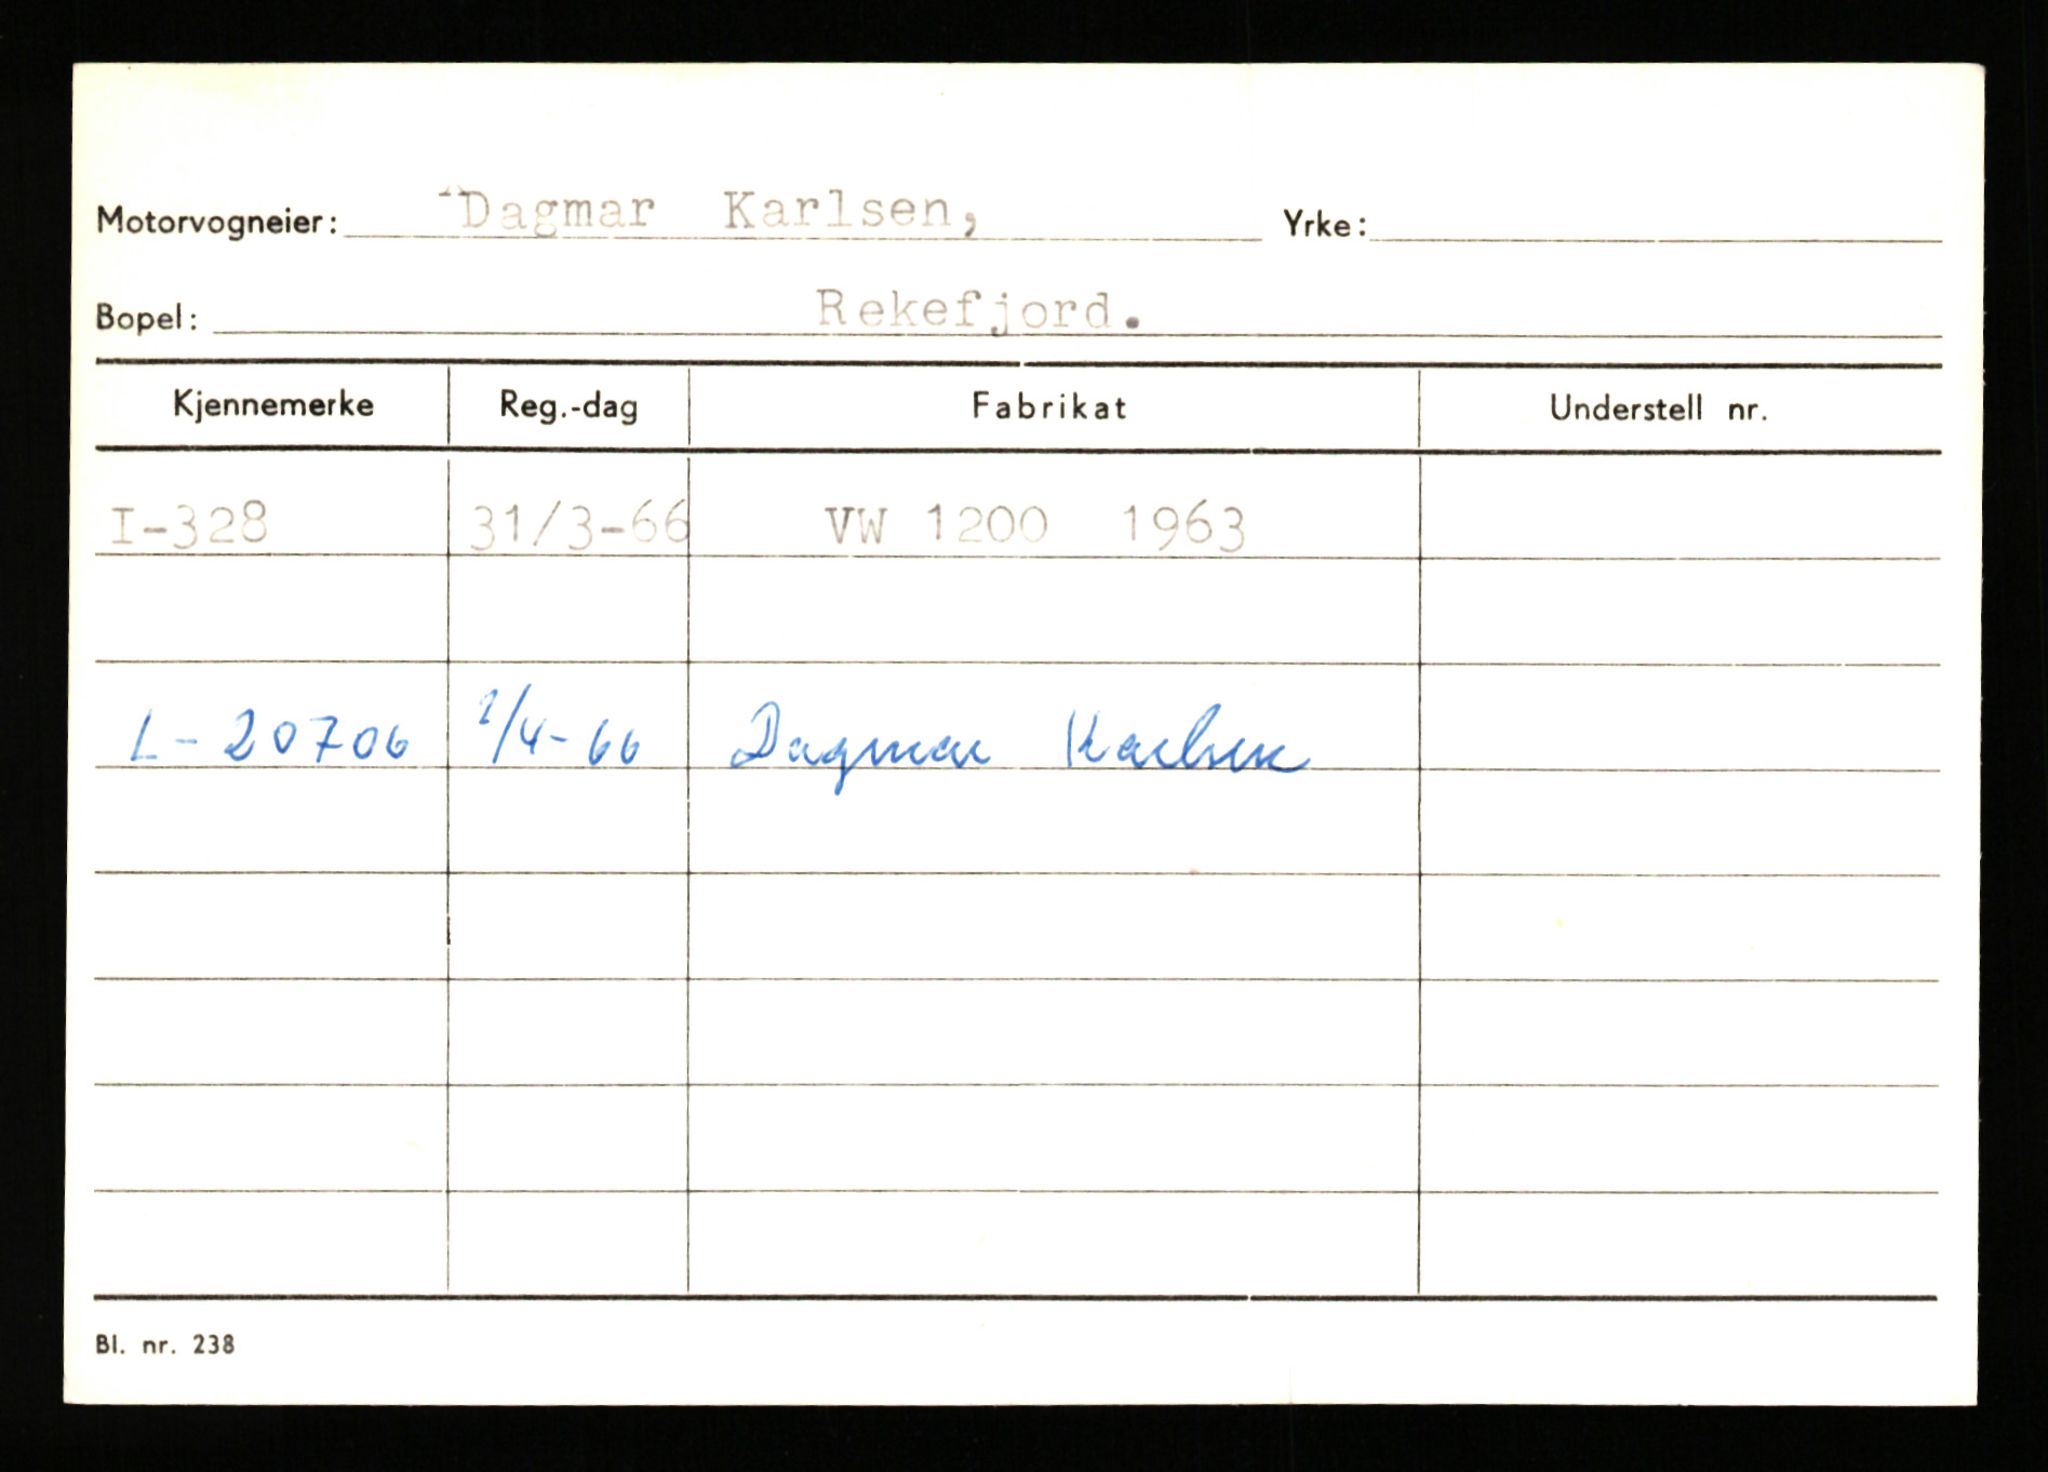 Motorvogneier: Dagmar Karlsen, Yrke:
Bopel: Rekefjord.
Kjennemerke Reg.-dag Fabrikat Understell nr.
I-328 31/3-66 VW 1200 1963
L-20706 1/4-66 Dagmar Karlsen
Bl. nr. 238